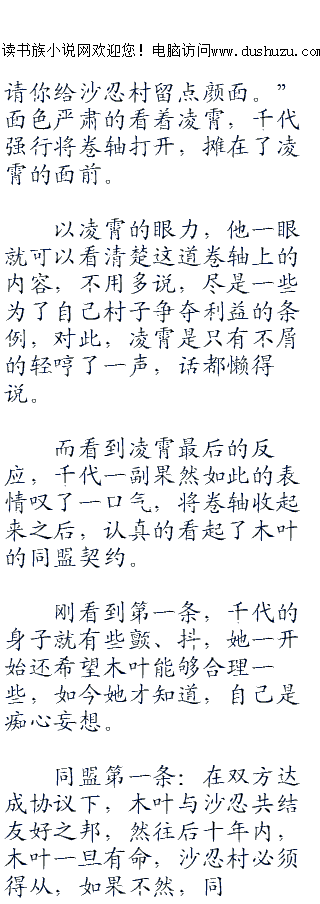 读书族小说网欢迎您！电脑访问www.dushuzu.com
请你给沙忍村留点颜面。”
面色严肃的看着凌霄，千代
强行将卷轴打开，摊在了凌
霄的面前。
以凌霄的眼力，他一眼
就可以看清楚这道卷轴上的
内容，不用多说，尽是一些
为了自己村子争夺利益的条
例，对此，凌霄是只有不屑
的轻哼了一声，话都懒得
说。
而看到凌霄最后的反
应，千代一副果然如此的表
情叹了一口气，将卷轴收起
来之后，认真的看起了木叶
的同盟契约。
刚看到第一条，千代的
身子就有些颤、抖，她一开
始还希望木叶能够合理一
些，如今她才知道，自己是
痴心妄想。
同盟第一条：在双方达
成协议下，木叶与沙忍共结
友好之邦，然往后十年内，
木叶一旦有命，沙忍村必须
得从，如果不然，同